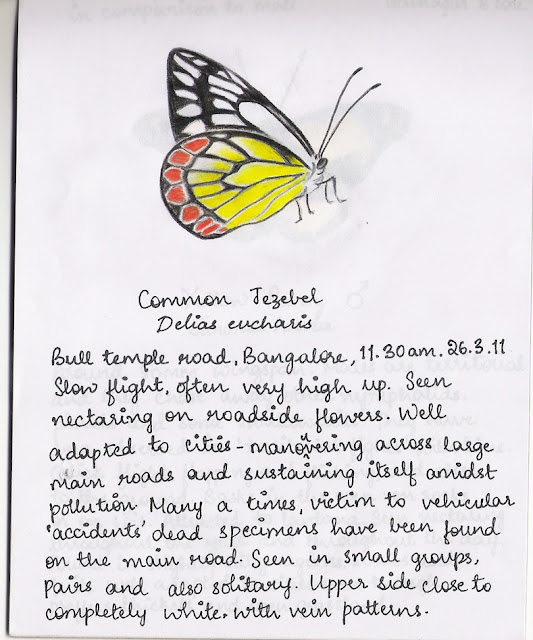 in comparison to male
Common Jezebel
Delias eucharis
Bull temple road, Bangalore, 11.30am. 26.3.11
Slow flight, often very high up. Seen
nectaring on roadside flowers. Well
adapted to cities - manoüvering across large
main roads and sustaining itself amidst
pollution. Many a times, victim to vehicular
'accidents' dead specimens have been found
on the main road. Seen in small groups,
pairs and also solitary. Upper side close to
completely white. with vein patterns.